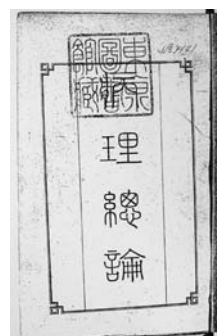 東京
圖書
館藏
理總論